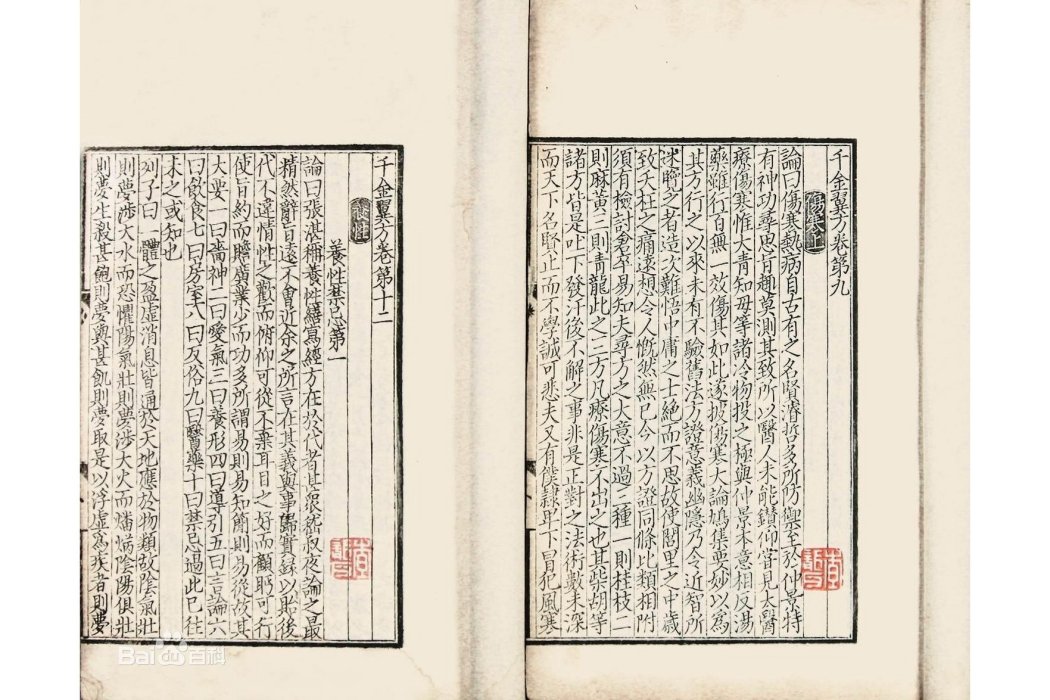 千金翼方卷第九
傷寒上
論曰傷寒熱病自古有之名賢濬哲多所防禦至於仲景特
有神功尋思旨趣莫測其致所以醫人未能鑽仰嘗見太醫
療傷寒惟大青知母等諸冷物投之極與仲景本意相反湯
藥雖行百無一效傷其如此遂披傷寒大論鳩集要妙以為
其方行之以來未有不驗舊法方證意義幽隱乃令近智所
迷覽之者造次難悟中庸之士絕而不思故使閭里之中歲
致夭枉之痛遠想令人慨然無已今以方證同條比類相附
須有檢討倉卒易知夫尋方之大意不過三種一則桂枝二
則麻黃三則青龍此之三方凡療傷寒不出之也其柴胡等
諸方皆是吐下發汗後不解之事非是正對之法術數未深
而天下名賢止而不學誠可悲夫又有僕隸卑下冒犯風寒
千金翼方卷第十二
養性
養性禁忌第一
論曰張湛稱養性繕寫經方在於代者甚眾嵇叔夜論之最
精然辭旨遠不會近余之所言在其義與事歸實錄以貽後
代不違情性之歡而俯仰可從不棄耳目之好而顧眄可行
使旨約而贍廣業少而功多所謂易則易知簡則易從故其
大要一曰嗇神二曰愛氣三曰養形四曰導引五曰言論六
曰飲食七曰房室八曰反俗九曰醫藥十曰禁忌過此已往
未之或知也
列子曰一體之盈虛消息皆通於天地應於物類故陰氣壯
則夢涉大水而恐懼陽氣壯則夢涉大火而燔焫陰陽俱壯
則夢生殺甚飽則夢與甚飢則夢取是以浮虛為疾者則夢
Bai 百科